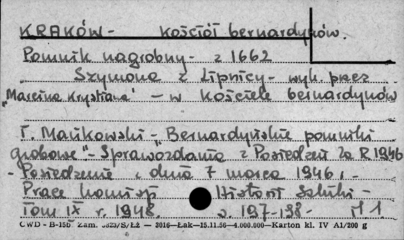 KRAKÓW - Kościół bernardynów.
Pomnik nagrobny - z 1662
Szymona z Lipnicy - wyk. przez
„Marcina Krystiana" - w Kościele bernardynów
T. Mańkowski - „Bernardyńskie pomniki
grobowe" - Sprawozdania z Posiedzeń za R 1946
- Posiedzenie z dnia 7 marca 1946 r -
Prace Komisji Historii Sztuki -
Tom IX r. 1948. s. 197-198 - M 1
CWD - B-15b Zam. S/Łż — 2016—Łak—15.11.56—4.000.000—Karton kl. IV A1/200 g